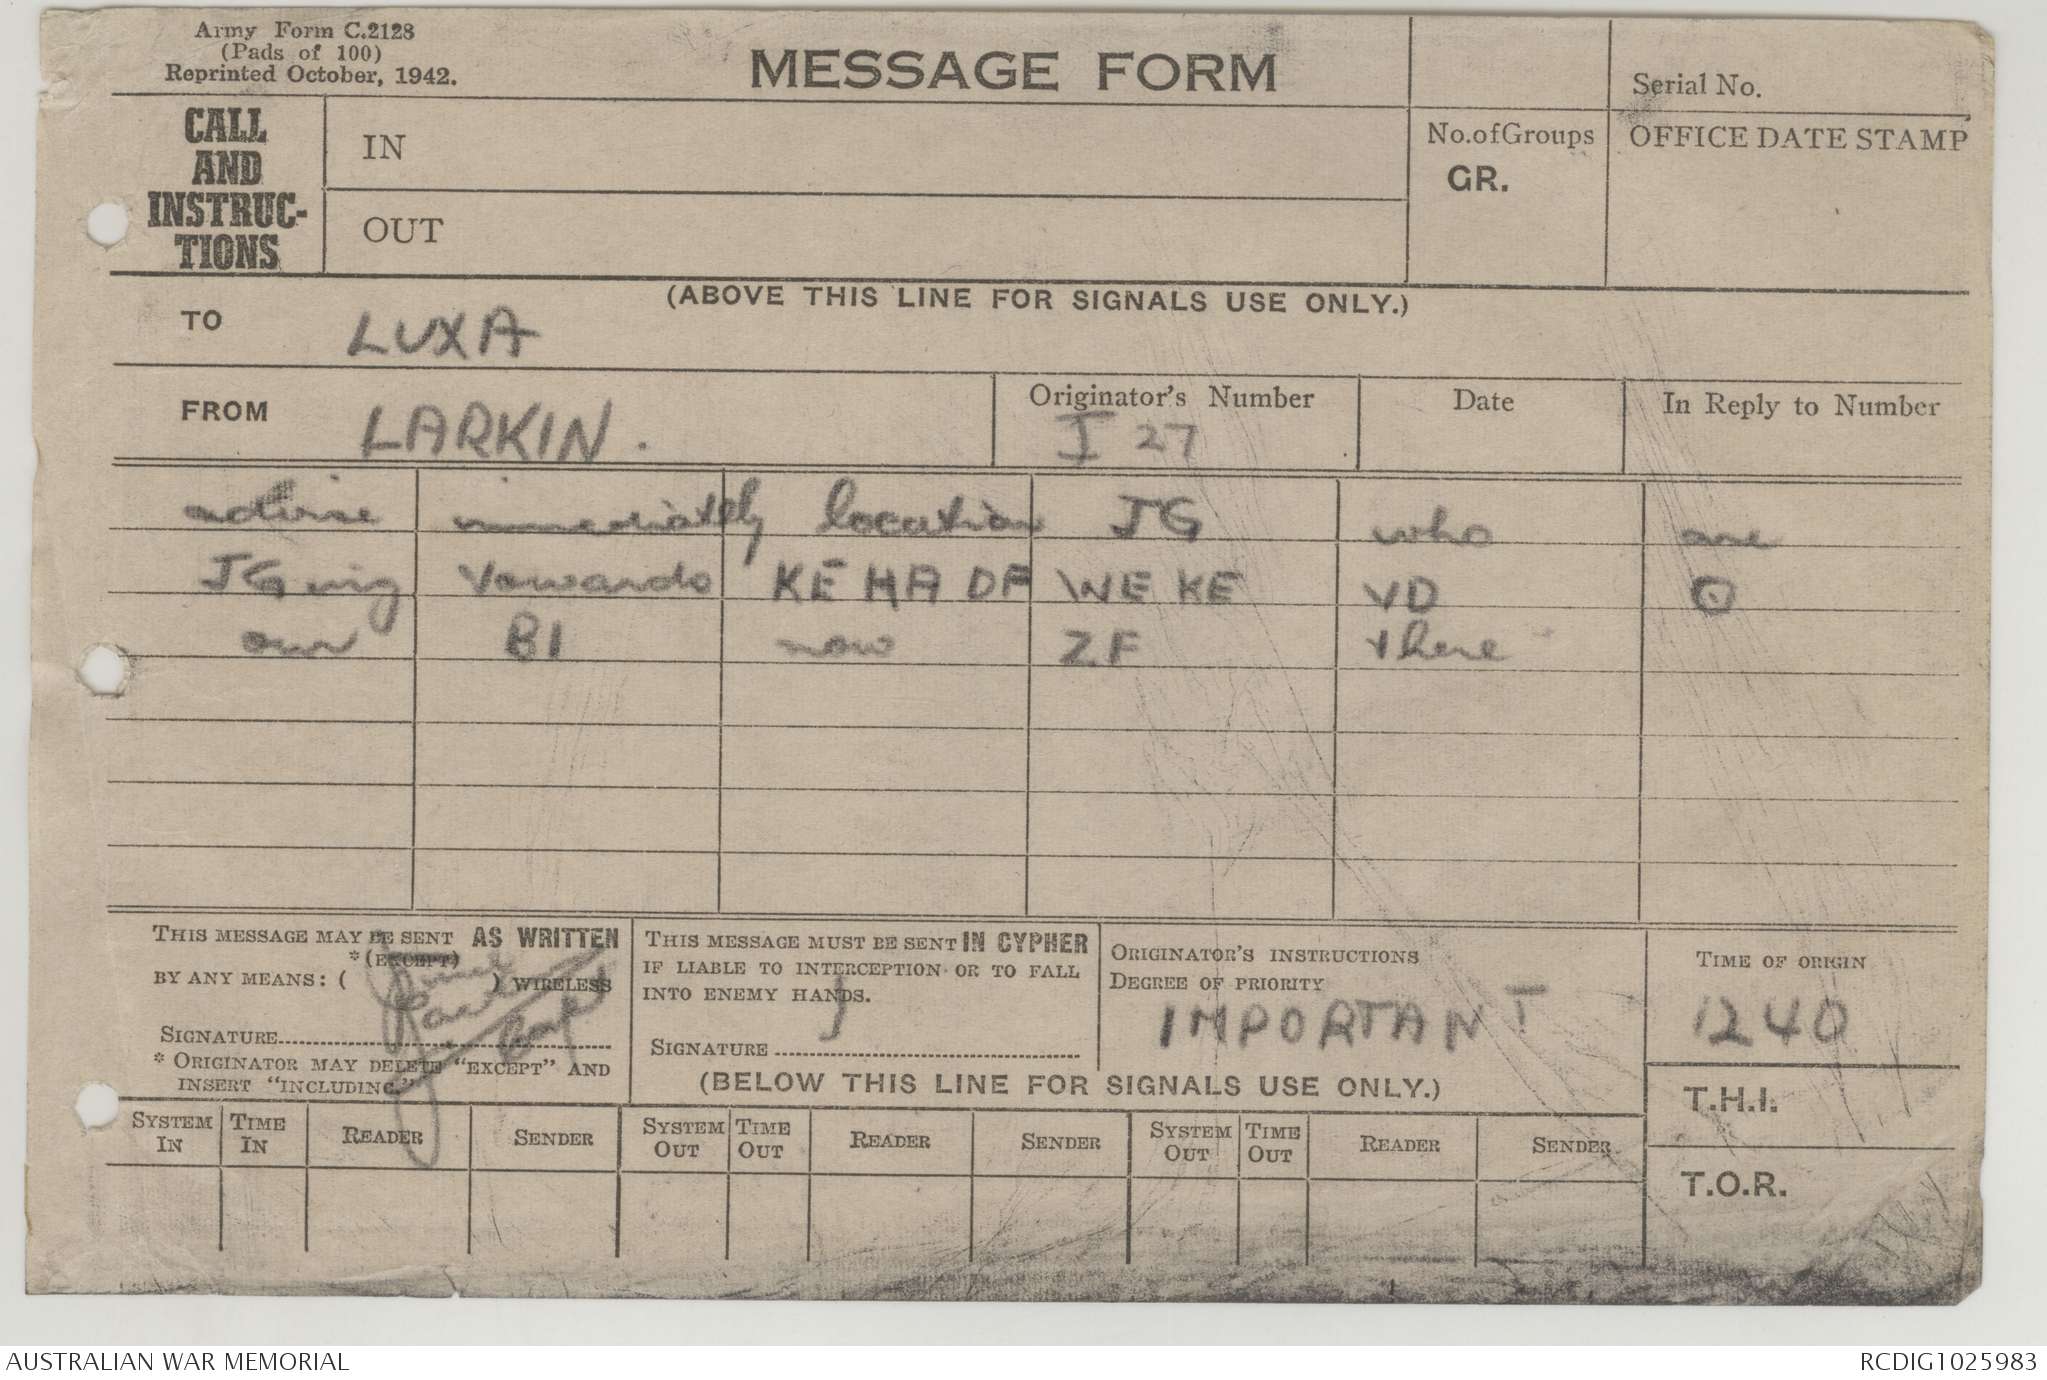 Army Form C.2128
(Pads of 100)
Reprinted October, 1942.
MESSAGE FORM
Serial No.
CALL
AND
INSTRUC-
TIONS
IN
OUT
No.ofGroups
GR.
OFFICE DATE STAMP
(ABOVE THIS LINE FOR SIGNALS USE ONLY.)
TO LUXA
FROM LARKIN.
Originator's Number
I 27
Date
In Reply to Number
advise immediately location JG who are
JGing towards KE HA DF WE KE VD ⊙
our BI now ZF there
THIS MESSAGE MAY BE SENT AS WRITTEN
*(EXCEPT)
BY ANY MEANS: ( ) WIRELESS
SIGNATURE
* ORIGINATOR MAY DELETE "EXCEPT" AND
INSERT "INCLUDING."
THIS MESSAGE MUST BE SENT IN CYPHER
IF LIABLE TO INTERCEPTION OR TO FALL
INTO ENEMY HANDS.
SIGNATURE
ORIGINATOR'S INSTRUCTIONS
DEGREE OF PRIORITY
IMPORTANT
TIME OF ORIGIN
1240
(BELOW THIS LINE FOR SIGNALS USE ONLY.)
T.H.I.
T.O.R.
SYSTEM IN TIME IN READER SENDER SYSTEM OUT TIME OUT READER SENDER SYSTEM OUT TIME OUT READER SENDER
AUSTRALIAN WAR MEMORIAL
RCDIG1025983